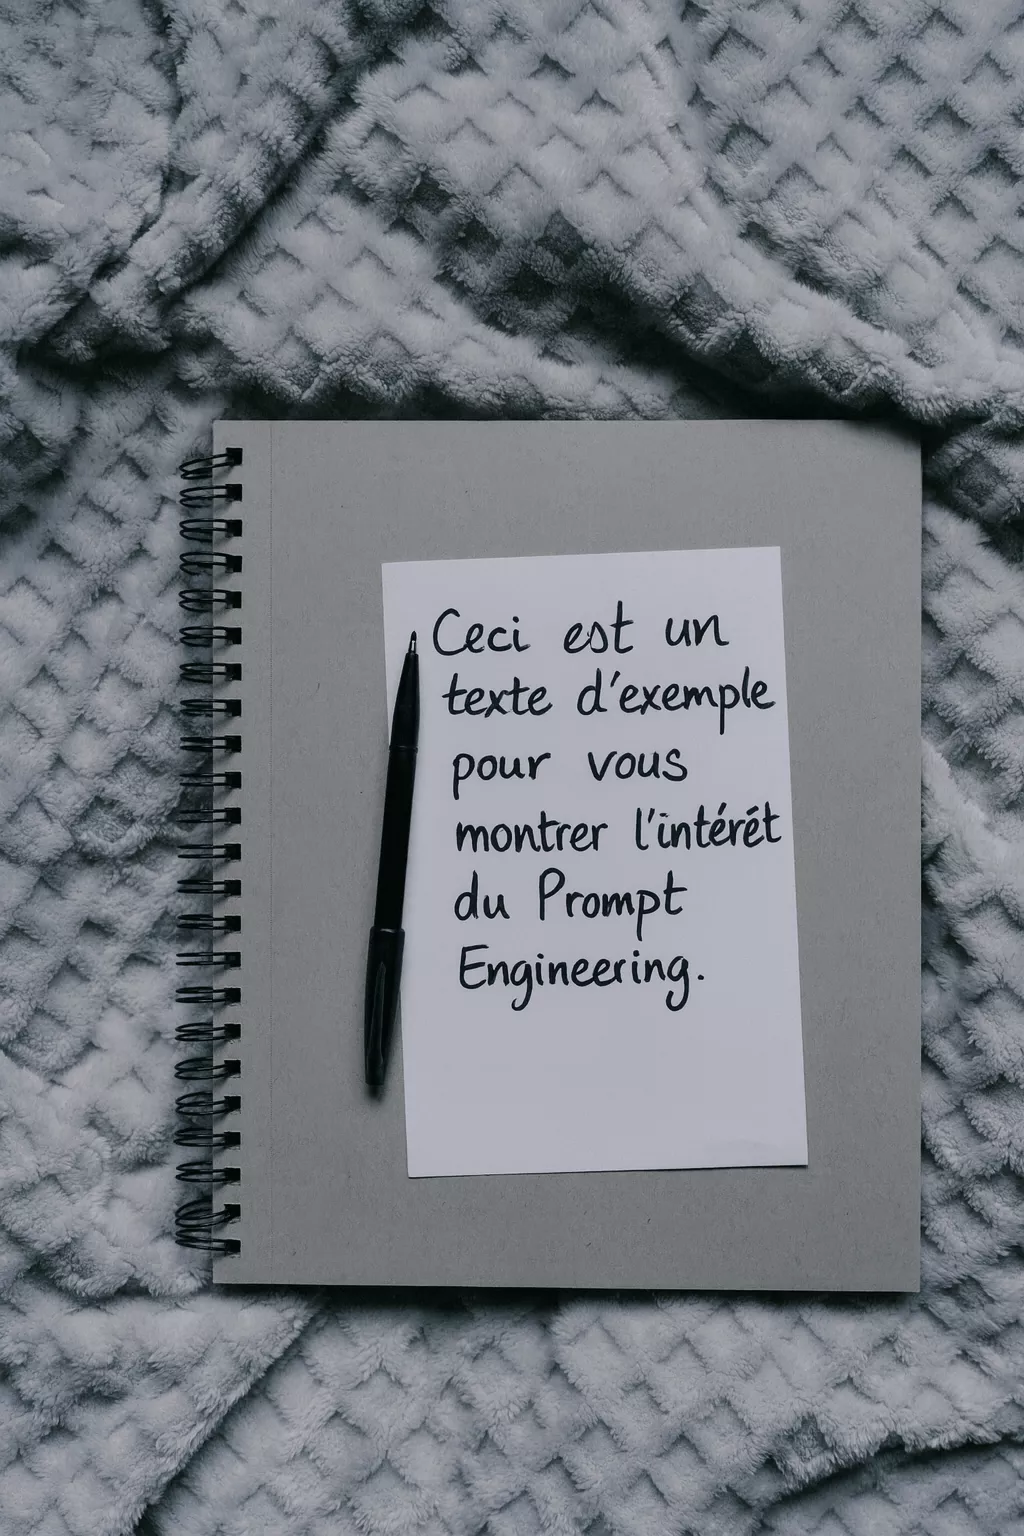 Ceci est un
texte d'exemple
pour vous
montrer l'intérét
du Prompt
Engineering.